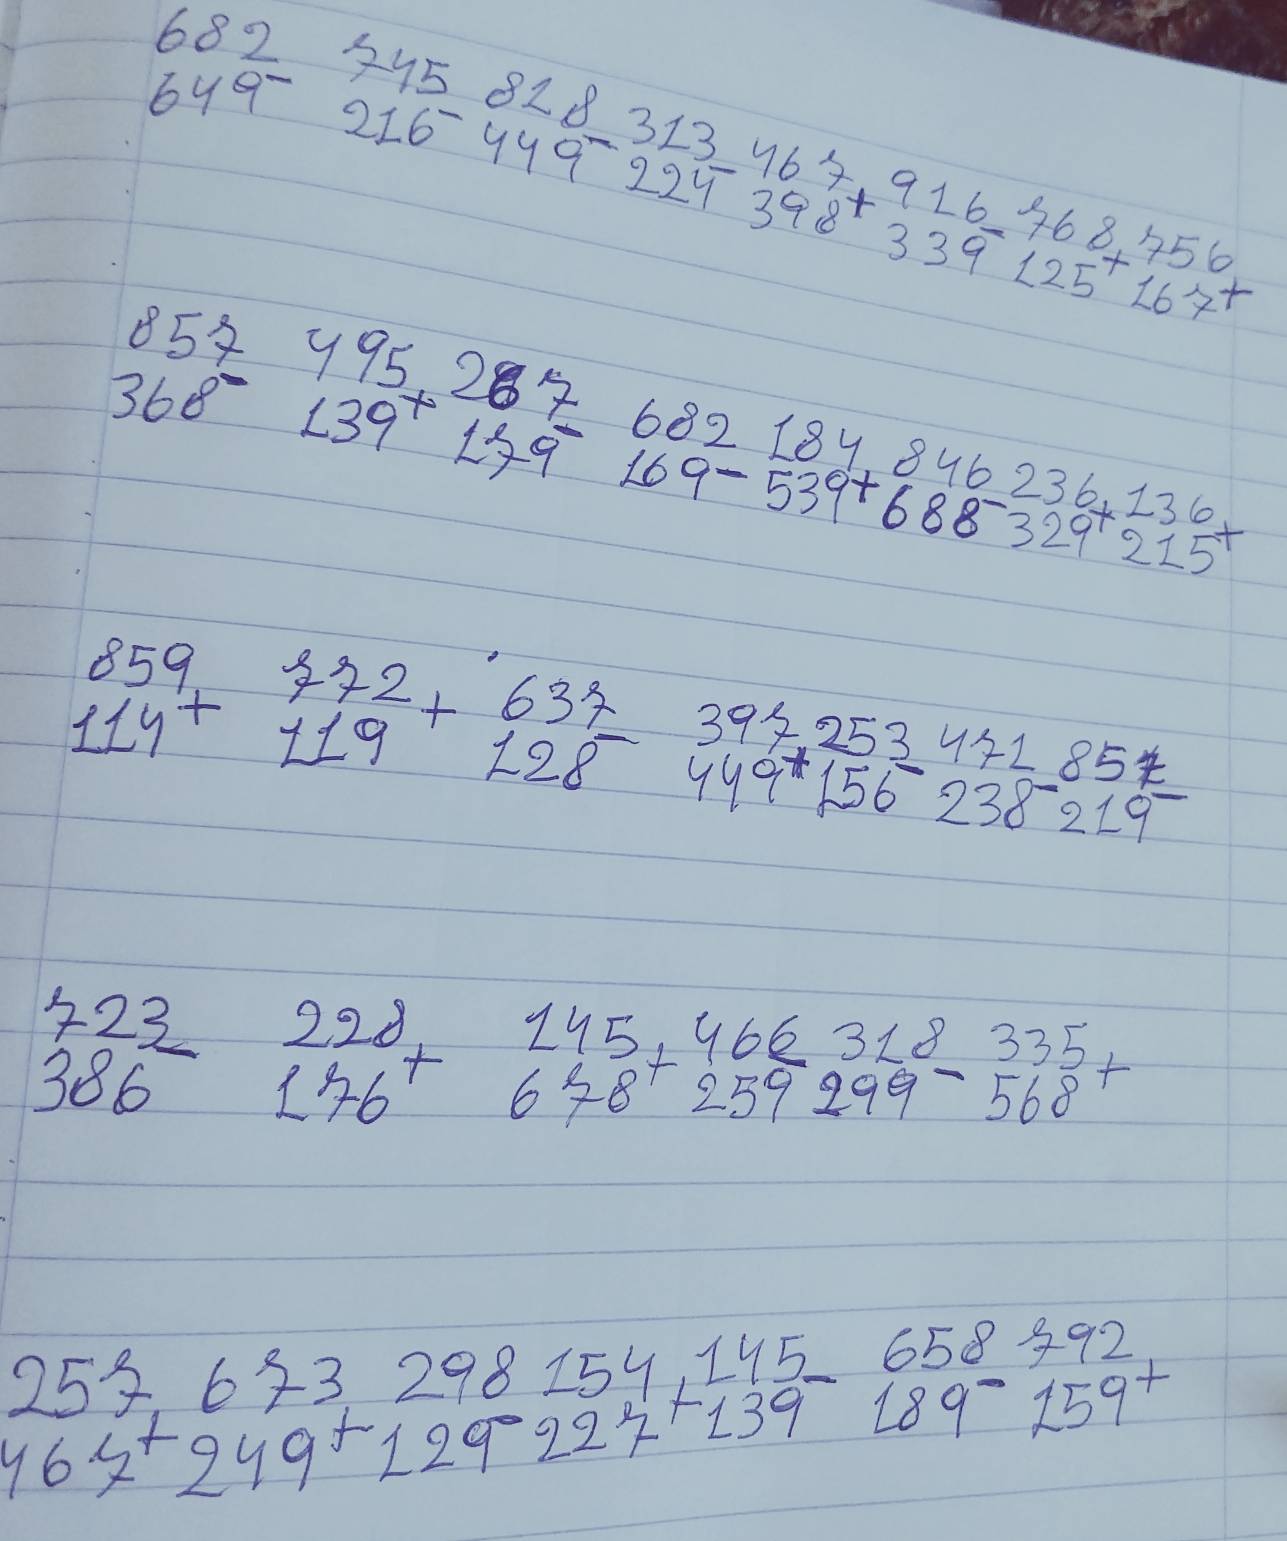 682 745 828 313 467 916 768 756
649- 216- 449- 224- 398+ 339- 125+ 167+
857 495 267 682 184 846 236 136
368- 139+ 179- 169- 539+ 688- 329+ 215+
859 772 637 397 253 471 857
114+ 119+ 128- 449+ 156- 238- 219-
723 228 145 466 318 335
386- 176+ 678+ 259- 299- 568+
257 673 298 154 145 658 792
467+ 249+ 129- 227+ 139- 189- 159+